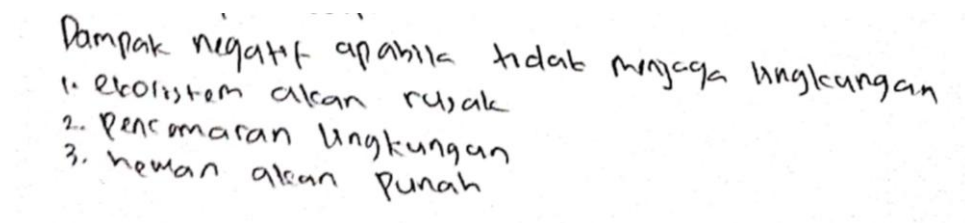 Dampak negatif apabila tidak menjaga lingkungan
1. ekosistem akan rusak
2. Pencomaran lingkungan
3. hewan akan Punah